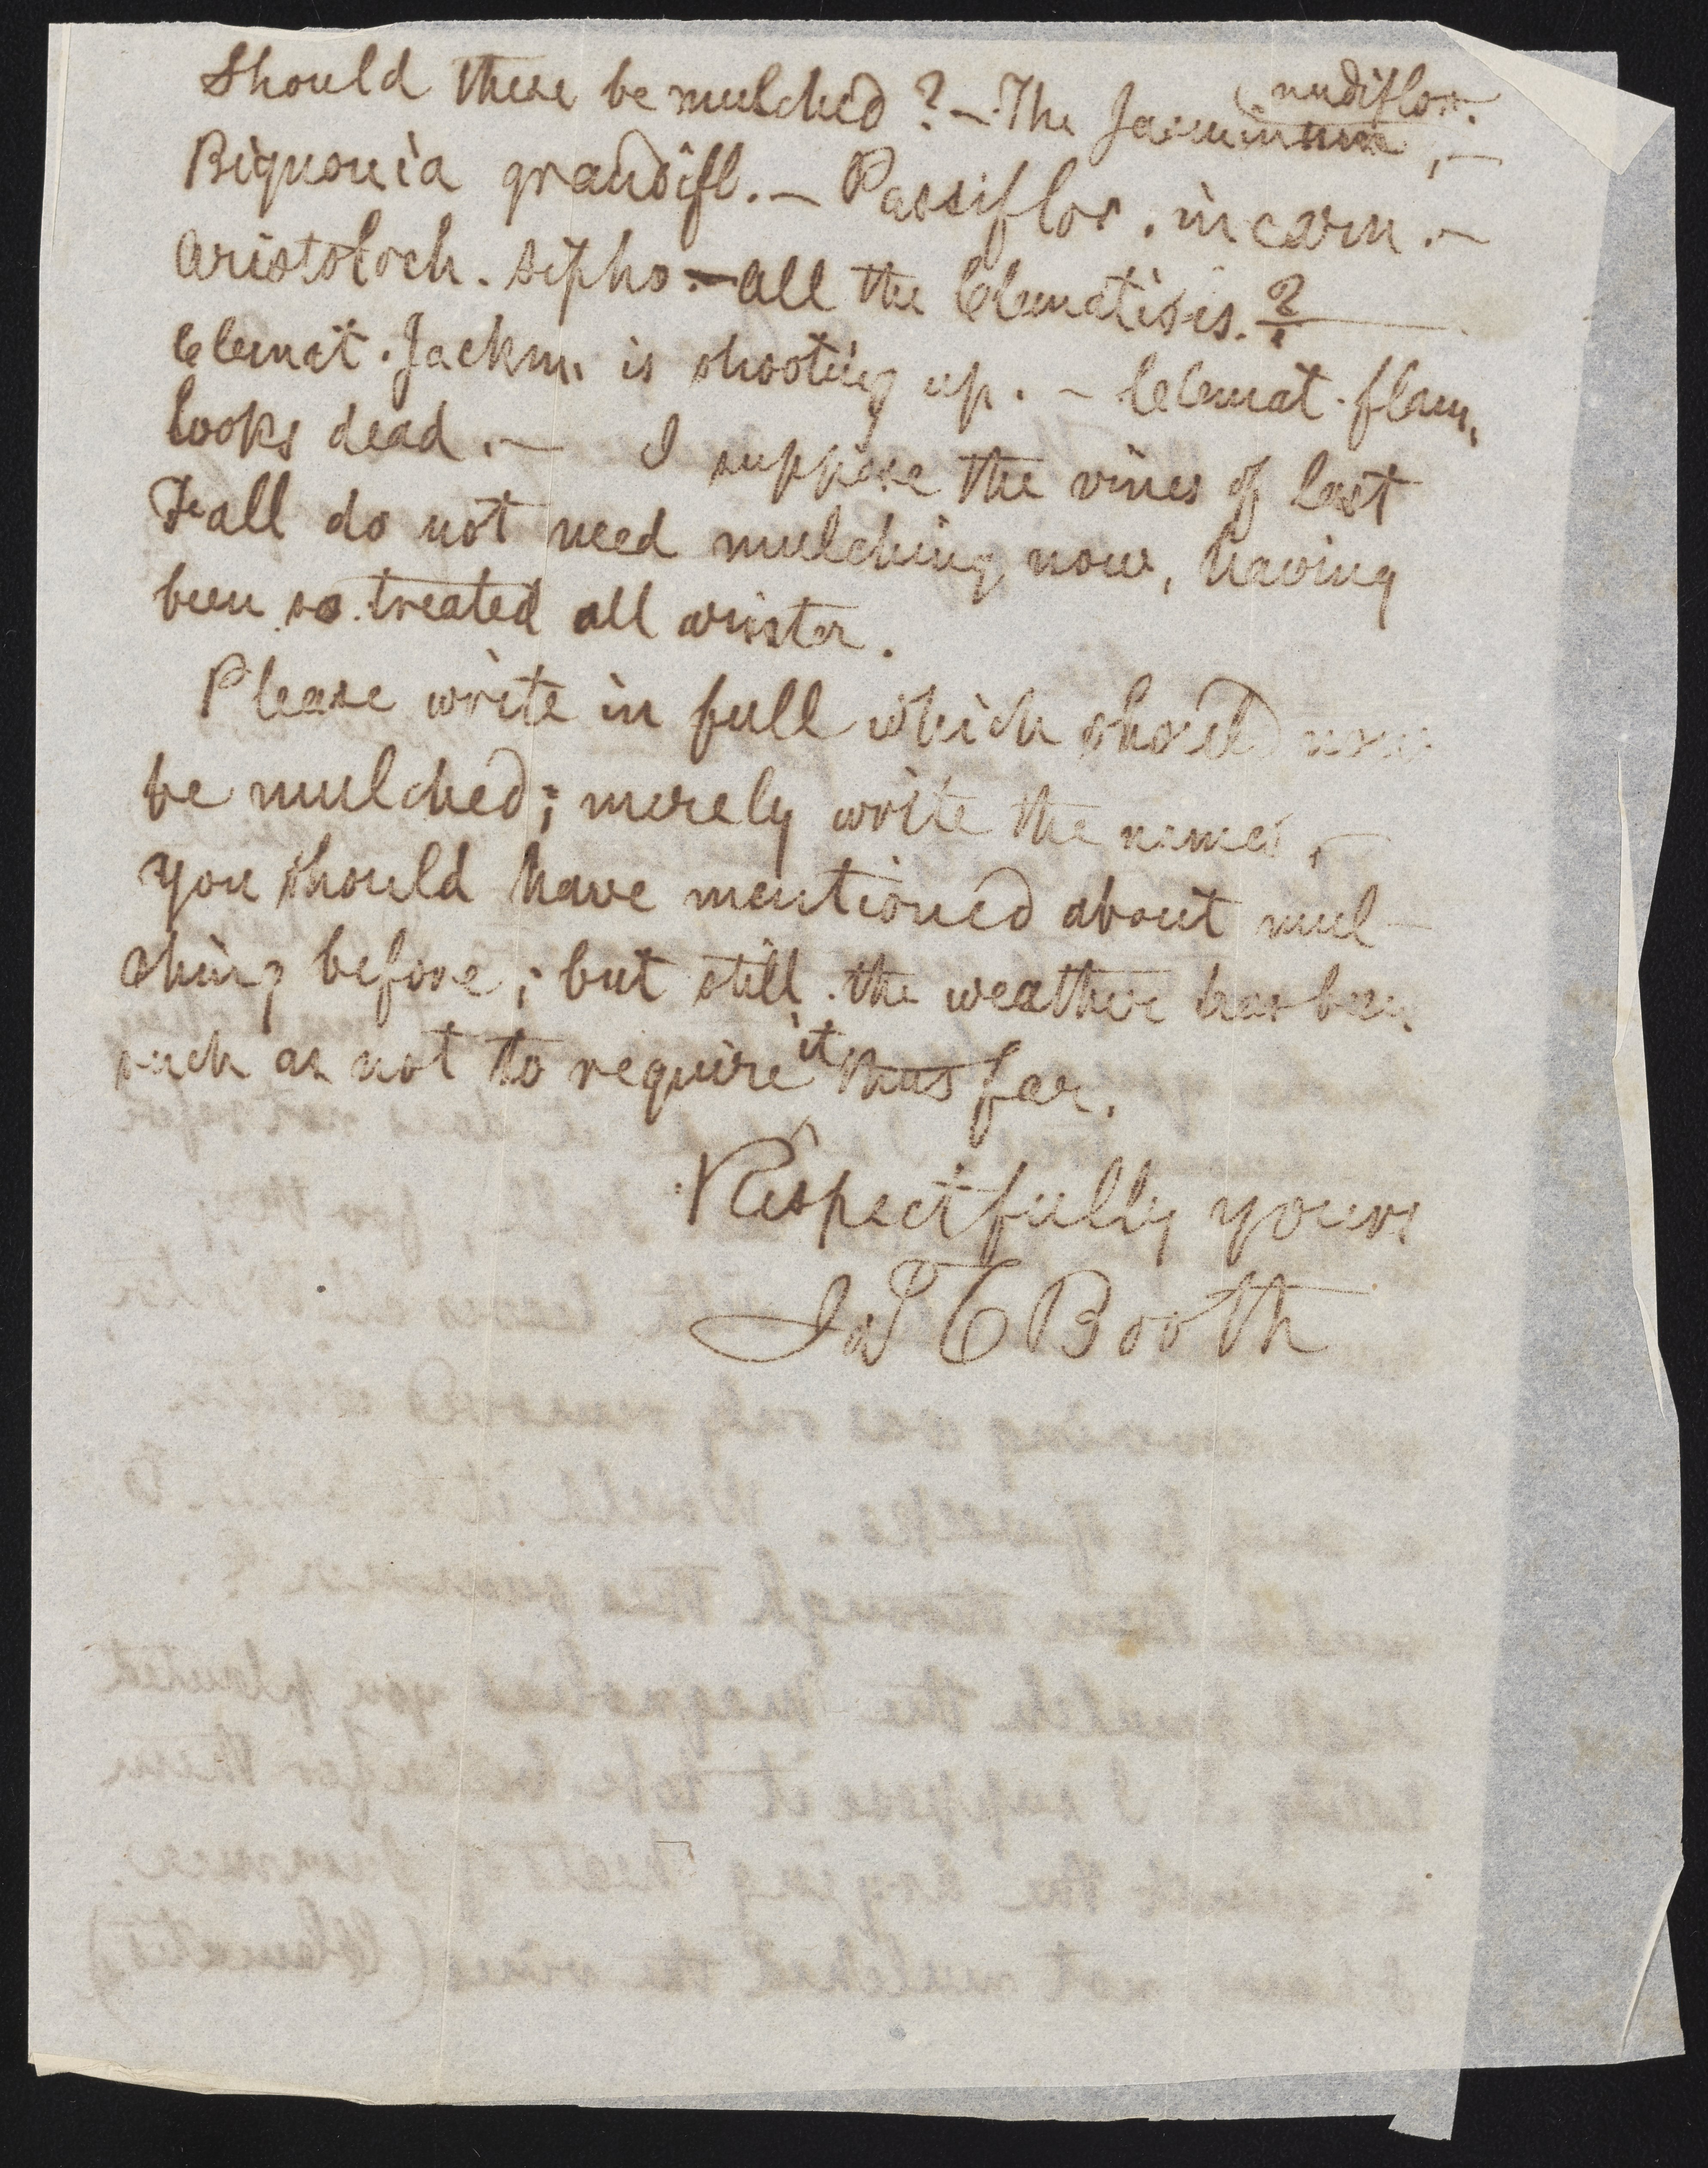 Should these be mulched? – The Jasminum nudiflor., –
Bignonia grandifl. – Passiflor. incarn. –
Aristoloch. sipho. – all the Clematisis.?
Clemat. Jackm. is shooting up. – Clemat. flam.
looks dead. – I suppose the vines of last
Fall do not need mulching now, having
been so treated all winter.
Please write in full which should now
be mulched; merely write the names. –
You should have mentioned about mul-
ching before; but still the weather has been
such as not to require it thus far.
Respectfully yours
Jas C Booth